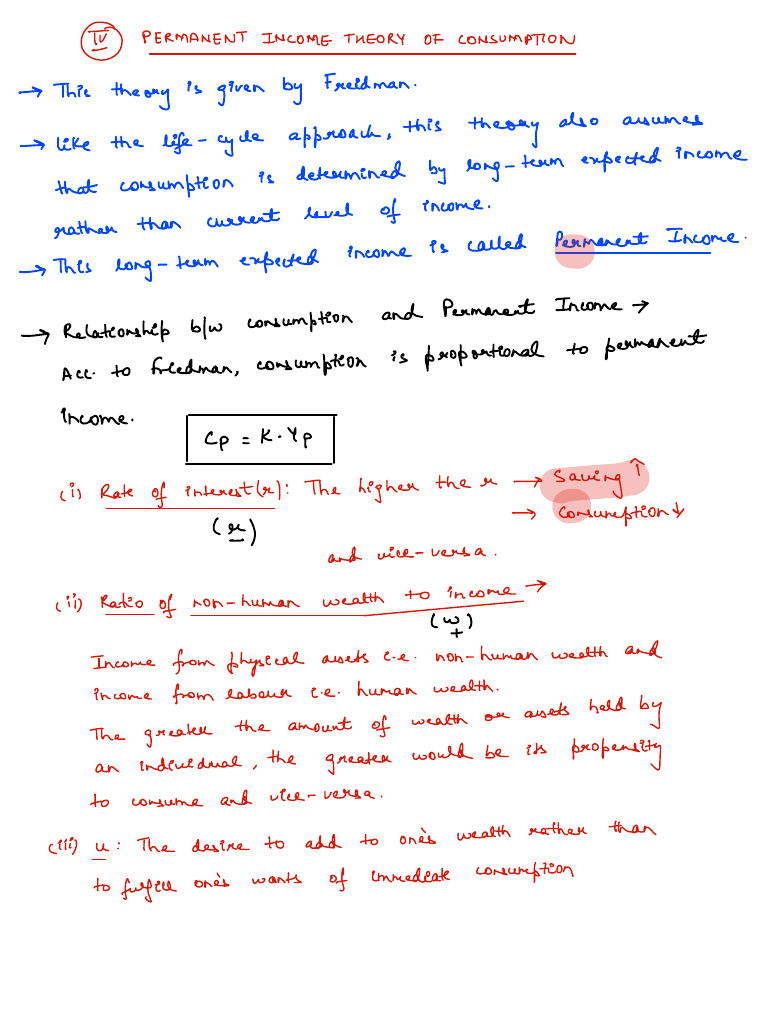 IV PERMANENT INCOME THEORY OF CONSUMPTION
→ This theory is given by Freidman.
→ Like the life-cycle approach, this theory also assumes
that consumption is determined by long-term expected income
rather than current level of income.
→ This long-term expected income is called Permanent Income.
→ Relationship b/w consumption and Permanent Income →
Acc. to Freedman, consumption is proportional to permanent
income.
Cp = K·Yp
(i) Rate of interest(r): The higher the r → Saving ↑
(r) → Consumption ↓
and vice-versa.
(ii) Ratio of non-human wealth to income →
(w)
+
Income from physical assets i.e. non-human wealth and
income from labour i.e. human wealth.
The greater the amount of wealth or assets held by
an individual, the greater would be its propensity
to consume and vice-versa.
(iii) u: The desire to add to one's wealth rather than
to fulfill one's wants of immediate consumption